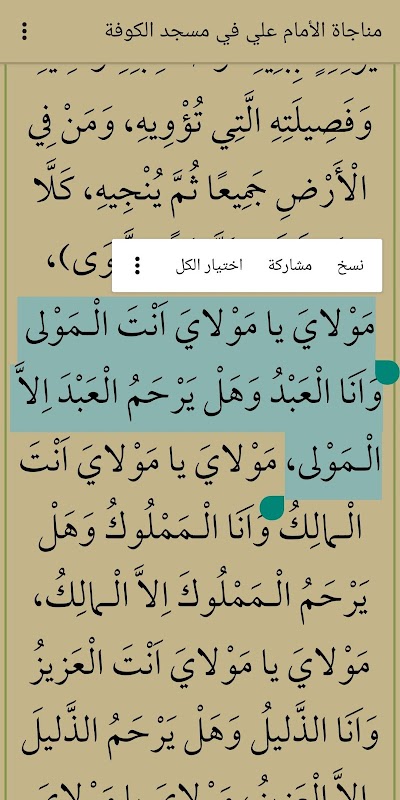 مناجاة الأمام علي في مسجد الكوفة
وَفَصِيلَتِهِ الَّتِي تُؤْوِيهِ، وَمَنْ فِي
الْأَرْضِ جَمِيعًا ثُمَّ يُنْجِيهِ، كَلَّا
نسخ مشاركة اختيار الكل
مَوْلايَ يا مَوْلايَ اَنْتَ الْـمَوْلى
وَاَنَا الْعَبْدُ وَهَلْ يَرْحَمُ الْعَبْدَ اِلاَّ
الْـمَوْلى، مَوْلايَ يا مَوْلايَ اَنْتَ
الْـمالِكُ وَاَنَا الْـمَمْلُوكُ وَهَلْ
يَرْحَمُ الْـمَمْلُوكَ اِلاَّ الْـمالِكُ،
مَوْلايَ يا مَوْلايَ اَنْتَ الْعَزيزُ
وَاَنَا الذَّليلُ وَهَلْ يَرْحَمُ الذَّليلَ
اِلاَّ الْعَزيزُ، مَوْلايَ يا مَوْلايَ